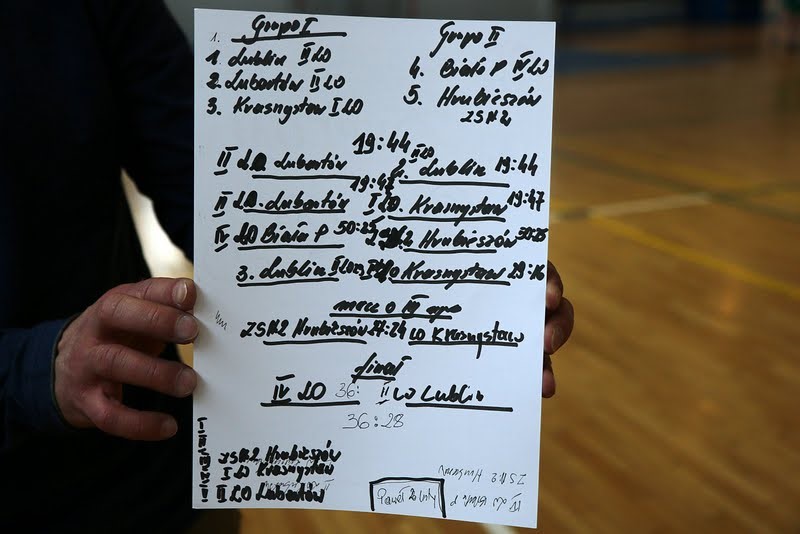 1. Grupa I
1. Lublin II LO
2. Lubartów II LO
3. Krasnystaw I LO
Grupa II
4. Biała P IV LO
5. Hrubieszów
ZSNR2
19:44
II LO Lubartów II LO Lublin 19:44
II LO Lubartów 19:47 I LO Krasnystaw 19:47
IV LO Biała P 50:25 2 Hrubieszów 50:25
3. Lublin II LO I LO Krasnystaw 29:16
mecz o III
ZSNR2 Hrubieszów 27:24 LO Krasnystaw
finał
IV LO 36: II LO Lublin
36:28
ZSNR2 Hrubieszów
I LO Krasnystaw
II LO Lubartów
Paweł
ZSNR2 Hrubieszów
IV LO Biała P